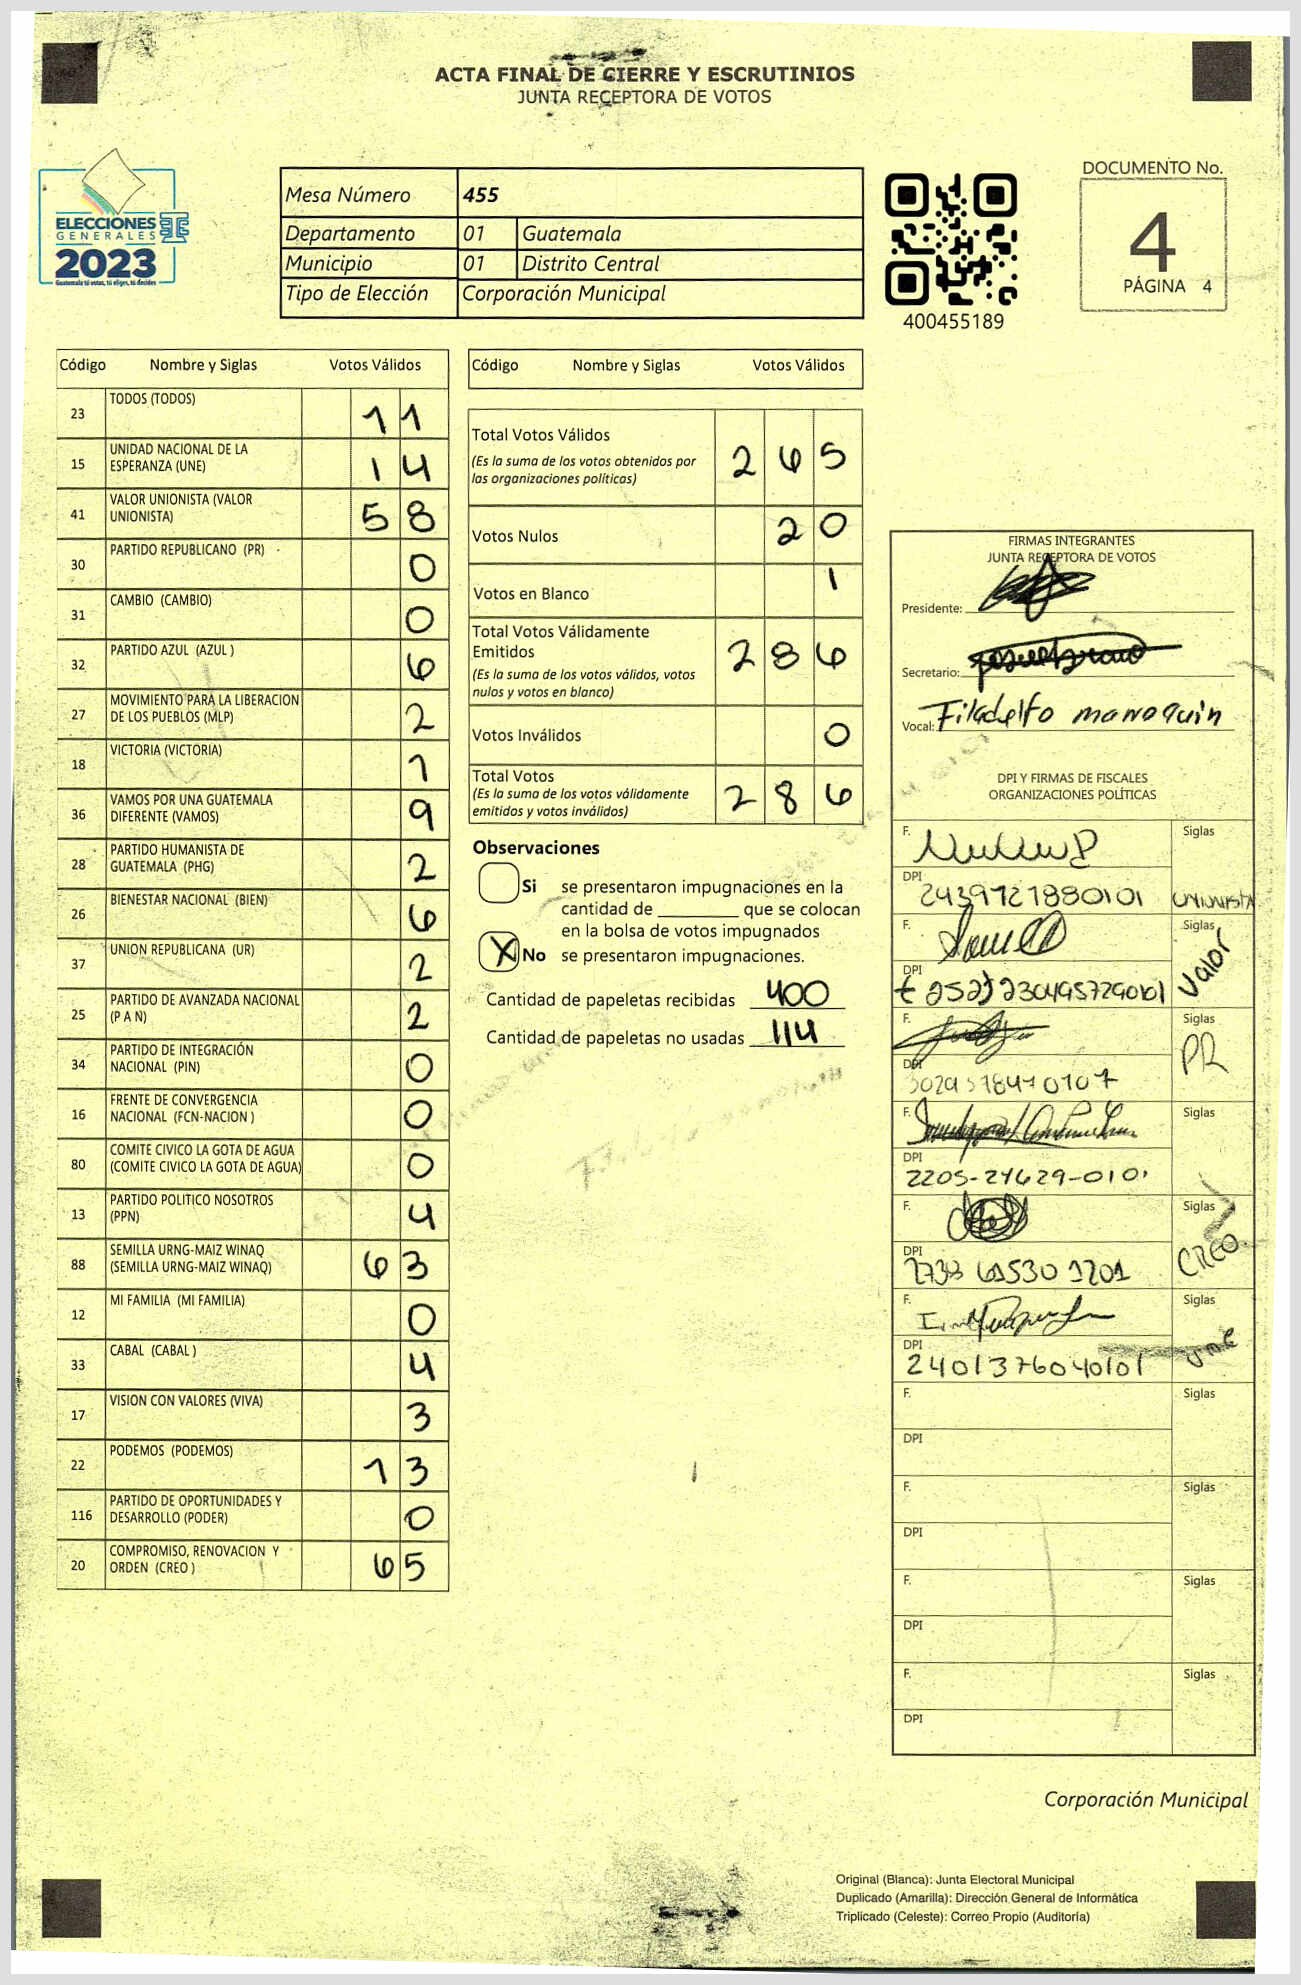 ACTA FINAL DE CIERRE Y ESCRUTINIOS
JUNTA RECEPTORA DE VOTOS
ELECCIONES
GENERALES
2023
Guatemala tú votas, tú eliges, tú decides
Mesa Número 455
Departamento 01 Guatemala
Municipio 01 Distrito Central
Tipo de Elección Corporación Municipal
400455189
DOCUMENTO No.
4
PÁGINA 4
Código Nombre y Siglas Votos Válidos
23 TODOS (TODOS) 11
15 UNIDAD NACIONAL DE LA ESPERANZA (UNE) 14
41 VALOR UNIONISTA (VALOR UNIONISTA) 58
30 PARTIDO REPUBLICANO (PR) 0
31 CAMBIO (CAMBIO) 0
32 PARTIDO AZUL (AZUL ) 6
27 MOVIMIENTO PARA LA LIBERACION DE LOS PUEBLOS (MLP) 2
18 VICTORIA (VICTORIA) 1
36 VAMOS POR UNA GUATEMALA DIFERENTE (VAMOS) 9
28 PARTIDO HUMANISTA DE GUATEMALA (PHG) 2
26 BIENESTAR NACIONAL (BIEN) 6
37 UNION REPUBLICANA (UR) 2
25 PARTIDO DE AVANZADA NACIONAL (P A N) 2
34 PARTIDO DE INTEGRACIÓN NACIONAL (PIN) 0
16 FRENTE DE CONVERGENCIA NACIONAL (FCN-NACION ) 0
80 COMITE CIVICO LA GOTA DE AGUA (COMITE CIVICO LA GOTA DE AGUA) 0
13 PARTIDO POLITICO NOSOTROS (PPN) 4
88 SEMILLA URNG-MAIZ WINAQ (SEMILLA URNG-MAIZ WINAQ) 63
12 MI FAMILIA (MI FAMILIA) 0
33 CABAL (CABAL ) 4
17 VISION CON VALORES (VIVA) 3
22 PODEMOS (PODEMOS) 13
116 PARTIDO DE OPORTUNIDADES Y DESARROLLO (PODER) 0
20 COMPROMISO, RENOVACION Y ORDEN (CREO ) 65
Código Nombre y Siglas Votos Válidos
Total Votos Válidos 265
(Es la suma de los votos obtenidos por
las organizaciones políticas)
Votos Nulos 20
Votos en Blanco 1
Total Votos Válidamente
Emitidos 286
(Es la suma de los votos válidos, votos
nulos y votos en blanco)
Votos Inválidos 0
Total Votos 286
(Es la suma de los votos válidamente
emitidos y votos inválidos)
Observaciones
Si se presentaron impugnaciones en la
cantidad de ________ que se colocan
en la bolsa de votos impugnados
X No se presentaron impugnaciones.
Cantidad de papeletas recibidas 400
Cantidad de papeletas no usadas 114
FIRMAS INTEGRANTES
JUNTA RECEPTORA DE VOTOS
Presidente:
Secretario:
Vocal: Filadelfo
DPI Y FIRMAS DE FISCALES
ORGANIZACIONES POLÍTICAS
F. Siglas
DPI 2439727880101 UNIONISTA
F. Siglas
DPI Valor
F. Siglas
DPI PR
F. Siglas
DPI 2205-27629-0101
F. Siglas
DPI CREO
F. Siglas
DPI 2401376040101 une
F. Siglas
DPI
F. Siglas
DPI
F. Siglas
DPI
F. Siglas
DPI
Corporación Municipal
Original (Blanca): Junta Electoral Municipal
Duplicado (Amarilla): Dirección General de Informática
Triplicado (Celeste): Correo Propio (Auditoría)